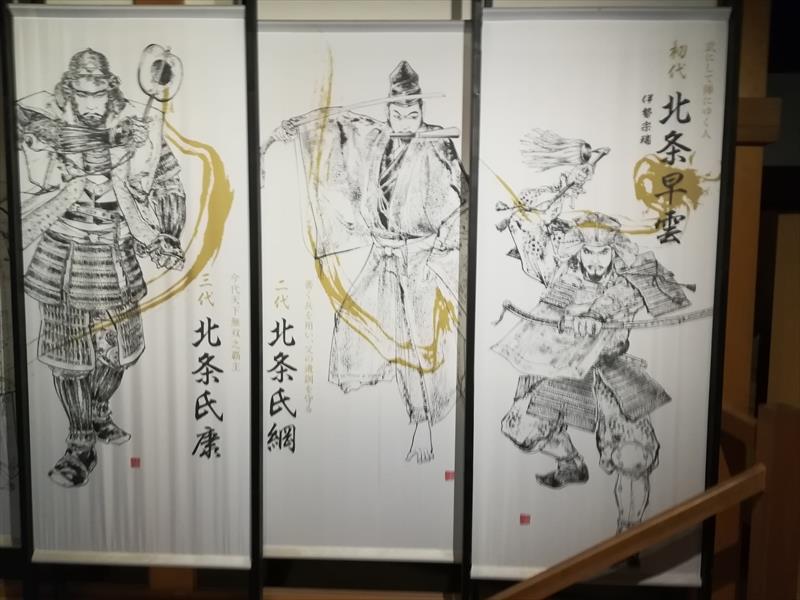 武にして師にゆく人
初代
北条早雲
伊勢宗瑞
二代
善く兵を用い、父の遺国を守る
北条氏綱
三代
今代天下無双之覇主
北条氏康